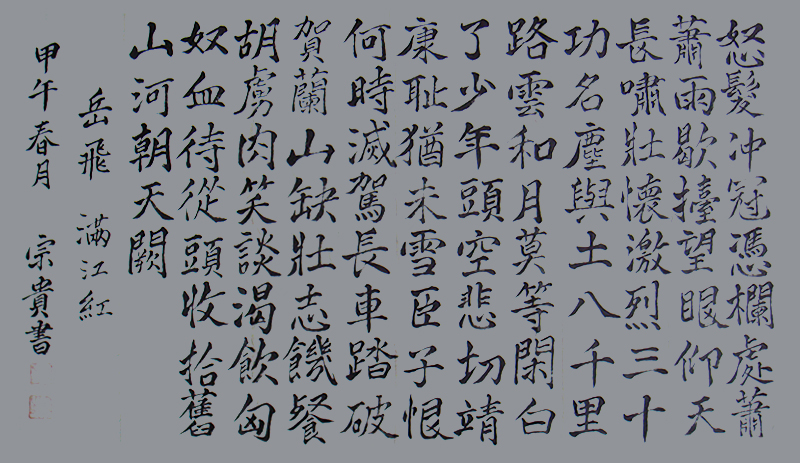 怒髮冲冠憑欄處蕭
蕭雨歇擡望眼仰天
長嘯壯懷激烈三十
功名塵與土八千里
路雲和月莫等閑白
了少年頭空悲切靖
康耻猶未雪臣子恨
何時滅駕長車踏破
賀蘭山缺壯志饑餐
胡虜肉笑談渴飲匈
奴血待從頭收拾舊
山河朝天闕
岳飛 滿江紅
甲午春月 宗貴書